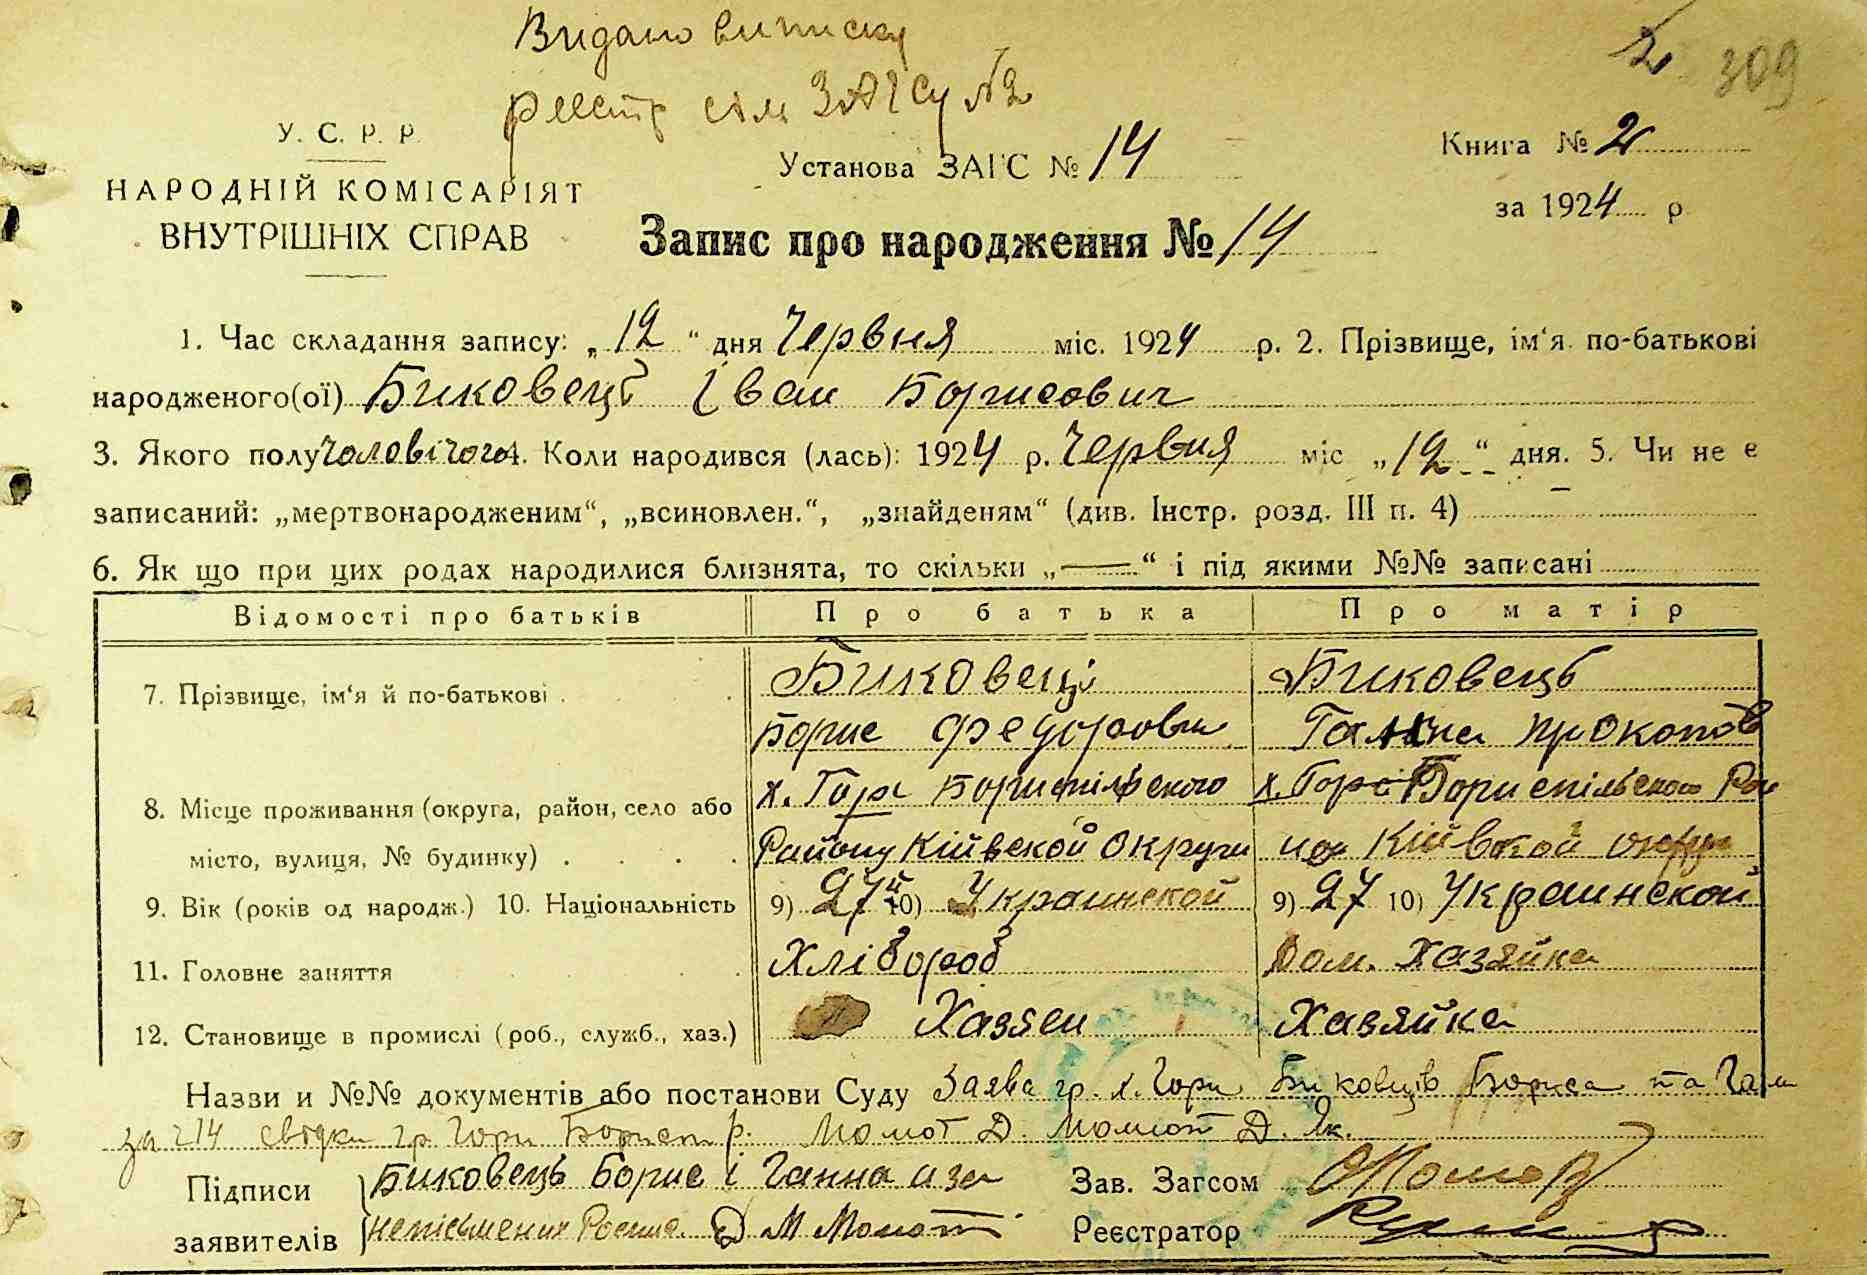 Видано виписку
реестр сіл ЗАГСу №2
2 309
У. С. Р. Р.
НАРОДНІЙ КОМІСАРІЯТ
ВНУТРІШНІХ СПРАВ
Установа ЗАГС № 14
Книга № 2
за 1924 р
Запис про народження № 14
1. Час складання запису: „12“ дня Червня міс. 1924 р. 2. Прізвище, ім‘я по-батькові
народженого(ої) Биковець Іван Борисович
3. Якого полу чоловічого 4. Коли народився (лась): 1924 р. Червня міс „12“ дня. 5. Чи не є
записаний: „мертвонародженим“, „всиновлен.“, „знайденям“ (див. Інстр. розд. III п. 4)
6. Як що при цих родах народилися близнята, то скільки „—“ і під якими №№ записані
Відомості про батьків Про батька Про матір
7. Прізвище, ім‘я й по-батькові Биковець Биковець
Борис Федорови Ганна Прокопов
8. Місце проживання (округа, район, село або х. Гори Бориспільского х. Горі Бориспільского Рай
місто, вулиця, № будинку) Району Київской Округи Київской округи
9. Вік (років од народж.) 10. Національність 9) 27 10) Украинской 9) 27 10) Украинской
11. Головне заняття Хлібороб Дом. Хазяйка
12. Становище в промислі (роб., служб., хаз.) Хазяен Хазяйка
Назви и №№ документів або постанови Суду Заява гр. х. Гори Биковців Бориса та Ган
за №14 свідки гр. Гори Борисп р. Момот Д. Момот Д. Як.
Підписи Биковець Борис і Ганна а за Зав. Загсом
заявителів неписьмених Роспис. Д М Момот Реєстратор